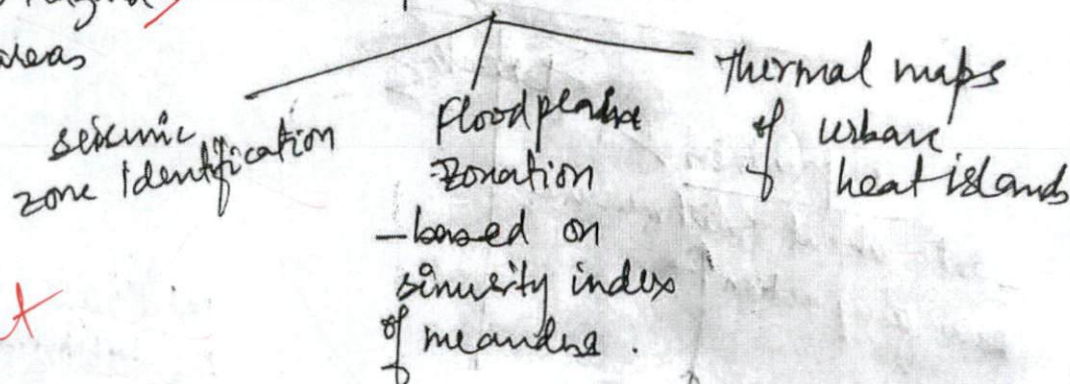 areas
seismic
zone identification
Floodplain
Zonation
– based on
sinusity index
of meanders.
Thermal maps
of urban
heat islands